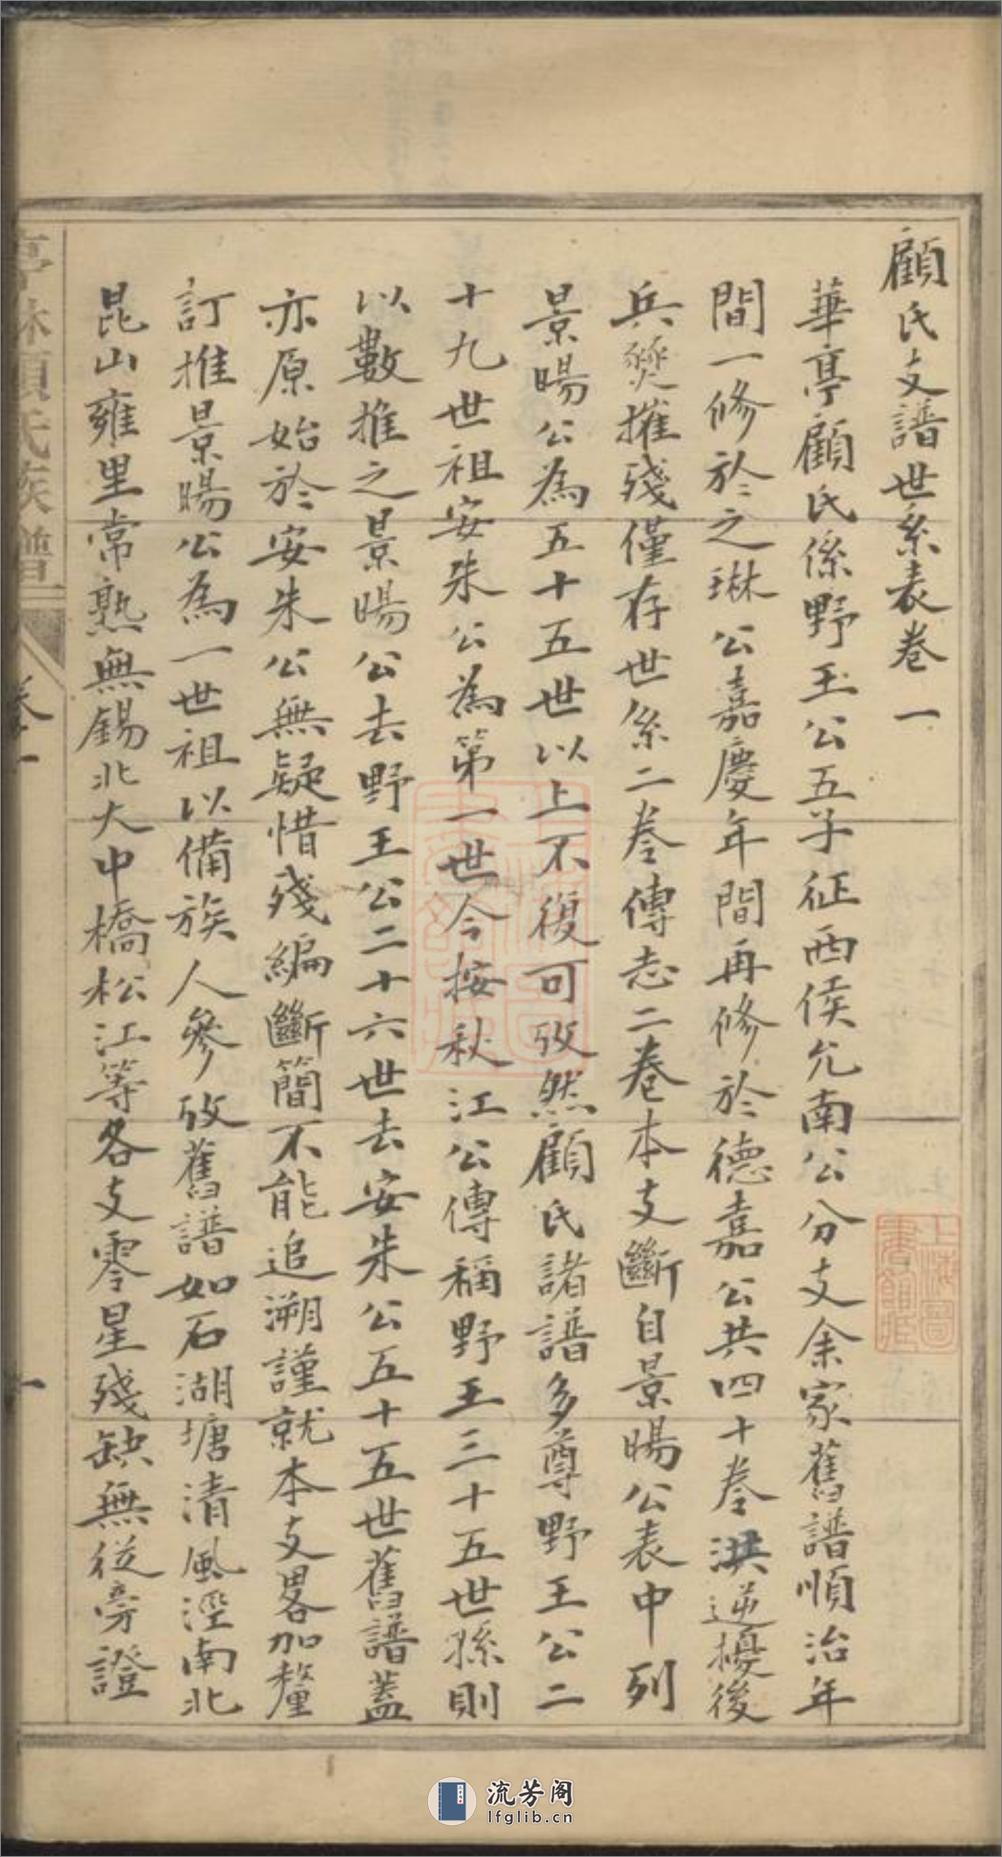 顧氏支譜世系表卷一
華亭顧氏係野王公五子征西侯允南公分支余家舊譜順治年
間一修於之琳公嘉慶年間再修於德嘉公共四十卷洪逆擾後
兵燹摧殘僅存世系二卷傳志二卷本支斷自景暘公表中列
景暘公為五十五世以上不復可攷然顧氏諸譜多尊野王公二
十九世祖安朱公為第一世今按秋江公傳稱野王三十五世孫則
以數推之景暘公去野王公二十六世去安朱公五十五世舊譜蓋
亦原始於安朱公無疑惜殘編斷簡不能追溯謹就本支畧加釐
訂推景暘公為一世祖以備族人參攷舊譜如石湖塘清風涇南北
昆山雍里常熟無錫北大中橋松江等各支零星殘缺無從旁證
亭林顧氏族譜
卷一
一
上海圖書館藏
流芳阁
lfglib.cn